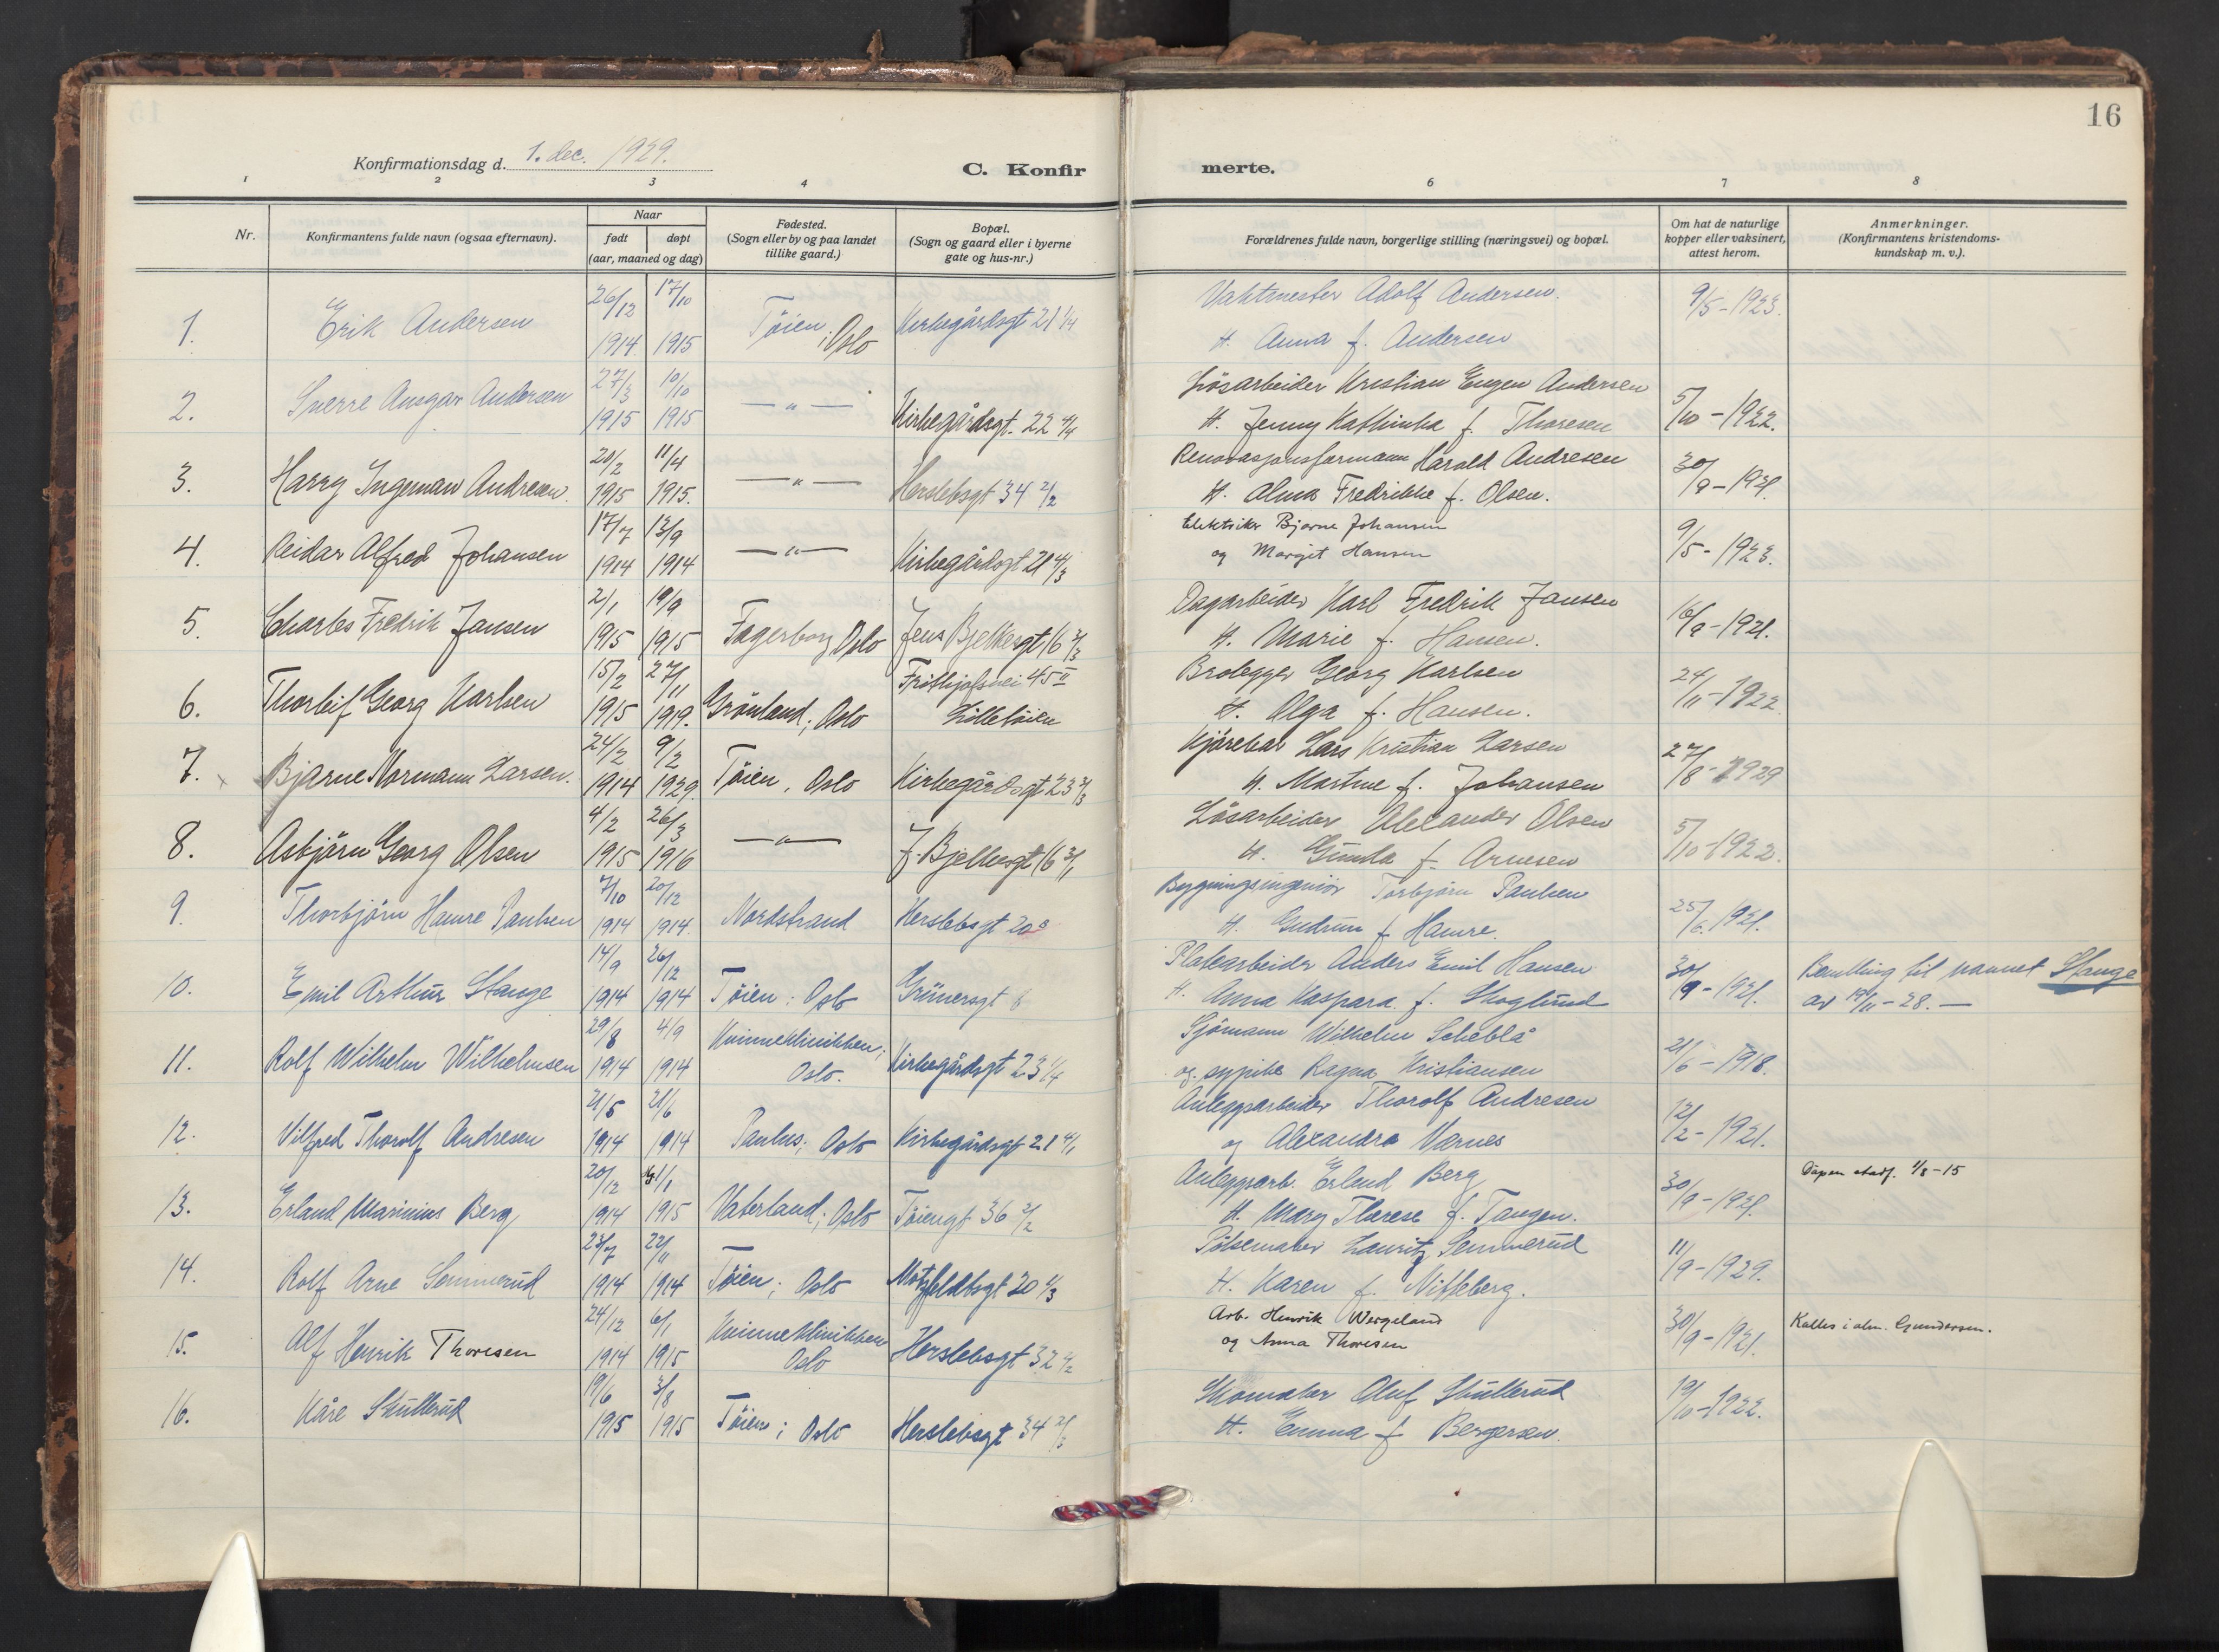 16
Konfirmationsdag d. 1. dec. 1929.
C. Konfir
merte.
1 2 3 4 6 7 8
Nr.
Konfirmantens fulde navn (ogsaa efternavn).
Naar
født døpt
(aar, maaned og dag)
Fødested.
(Sogn eller by og paa landet
tillike gaard.)
Bopæl.
(Sogn og gaard eller i byerne
gate og hus-nr.)
Forældrenes fulde navn, borgerlige stilling (næringsvei) og bopæl.
Om hat de naturlige
kopper eller vaksinert,
attest herom.
Anmerkninger.
(Konfirmantens kristendoms-
kundskap m. v.).
26/12 17/10 Vaktmester Adolf Andersen. 9/5-1923.
1. Erik Andersen 1914 1915 Töien; Oslo Kirkegårdsgt 21 1/4 H. Anna f. Andersen
27/3 10/10 Lösarbeider Kristian Eugen Andersen
2. Sverre Ansgar Andersen 1915 1915 —"— Kirkegårdsgt. 22 4/4 H. Jenny Kathinka f. Thoresen 5/10-1922.
20/2 11/4 Renovasjonsformann Harald Andresen
3. Harry Ingeman Andresen. 1915 1915. —"— Herslebsgt 34 2/2 H. Alma Fredrikke f. Olsen. 30/9-1921.
17/7 13/9 Elektriker Bjarne Johansen
4. Reidar Alfred Johansen 1914 1914 —"— Kirkegårdsgt 21 4/3 og Margit Hansen 9/5-1923.
2/1 19/9 Dagarbeider Karl Fredrik Jansen
5. Charles Fredrik Jansen 1915 1915 Fagerborg, Oslo Jens Bjelkesgt 16 3/3 H. Marie f. Hansen. 16/9-1921.
15/2 27/11 Frithjofsvei 45 II Brolegger Georg Karlsen
6. Thorleif Georg Karlsen 1915 1919. Grönland; Oslo Lilletöien H. Olga f. Hansen. 24/11-1922.
24/2 9/2 Kjörekar Lars Kristian Larsen
7. x Bjarne Normann Larsen. 1914 1929. Töien, Oslo Kirkegårdsgt 23 3/3 H. Martine f. Johansen 27/8-1929
4/2 26/3 Lösarbeider Alexander Olsen
8. Asbjörn Georg Olsen 1915 1916 —"— J. Bjelkesgt 16 3/1 H. Gunda f. Arnesen 5/10-1922.
7/10 20/12 Bygningsingeniör Torbjörn Paulsen
9. Thorbjörn Hamre Paulsen 1914 1914. Nordstrand Herslebsgt 20 H. Gudrun f Hamre. 25/6.1921.
14/9 26/12 Platearbeider Anders Emil Hansen
10. Emil Arthur Stange 1914 1914 Töien; Oslo Grünersgt H. Anna Kaspara f. Skoglund 30/9-1921. Bevilling til navnet Stange
av 19/11-28. —
29/8 4/9 Kvinneklinikken; Sjömann Wilhelm Scheblå
11. Rolf Wilhelm Wilhelmsen 1914 1914 Oslo. Kirkegårdsgt 23 1/4 og sypike Ragna Kristiansen 21/6-1918.
21/5 21/6 Anleggsarbeider Thorolf Andresen
12. Vilfred Thorolf Andresen 1914 1914 Paulus; Oslo Kirkegårdsgt 21 4/1 og Alexandra Varnes 12/2-1921.
20/12 1/1 Anleggsarb. Erland Berg Dåpen stadf. 1/8-15
13. Erland Marinius Berg 1914 1915 Vaterland; Oslo Töiengt 36 2/2 H. Mary Therese f. Tangen. 30/9-1921.
23/7 22/11 Pölsemaker Lauritz Semmerud
14. Rolf Arne Semmerud 1914 1914 Töien; Oslo Motzfeldtsgt 20 4/3 H. Karen f. Nitteberg. 11/9-1929.
24/12 6/1 Kvinneklinikken Arb. Henrik Wergeland
15. Alf Henrik Thoresen 1914 1915 Oslo Herslebsgt 32 4/2 og Anna Thoresen 30/9-1921. Kalles i alm. Gundersen.
19/6 3/8 Skomaker Oluf Skullerud
16. Kåre Skullerud 1915 1915 Töien; Oslo Herslebsgt 34 2/3 H. Emma f Bergersen. 19/10-1922.